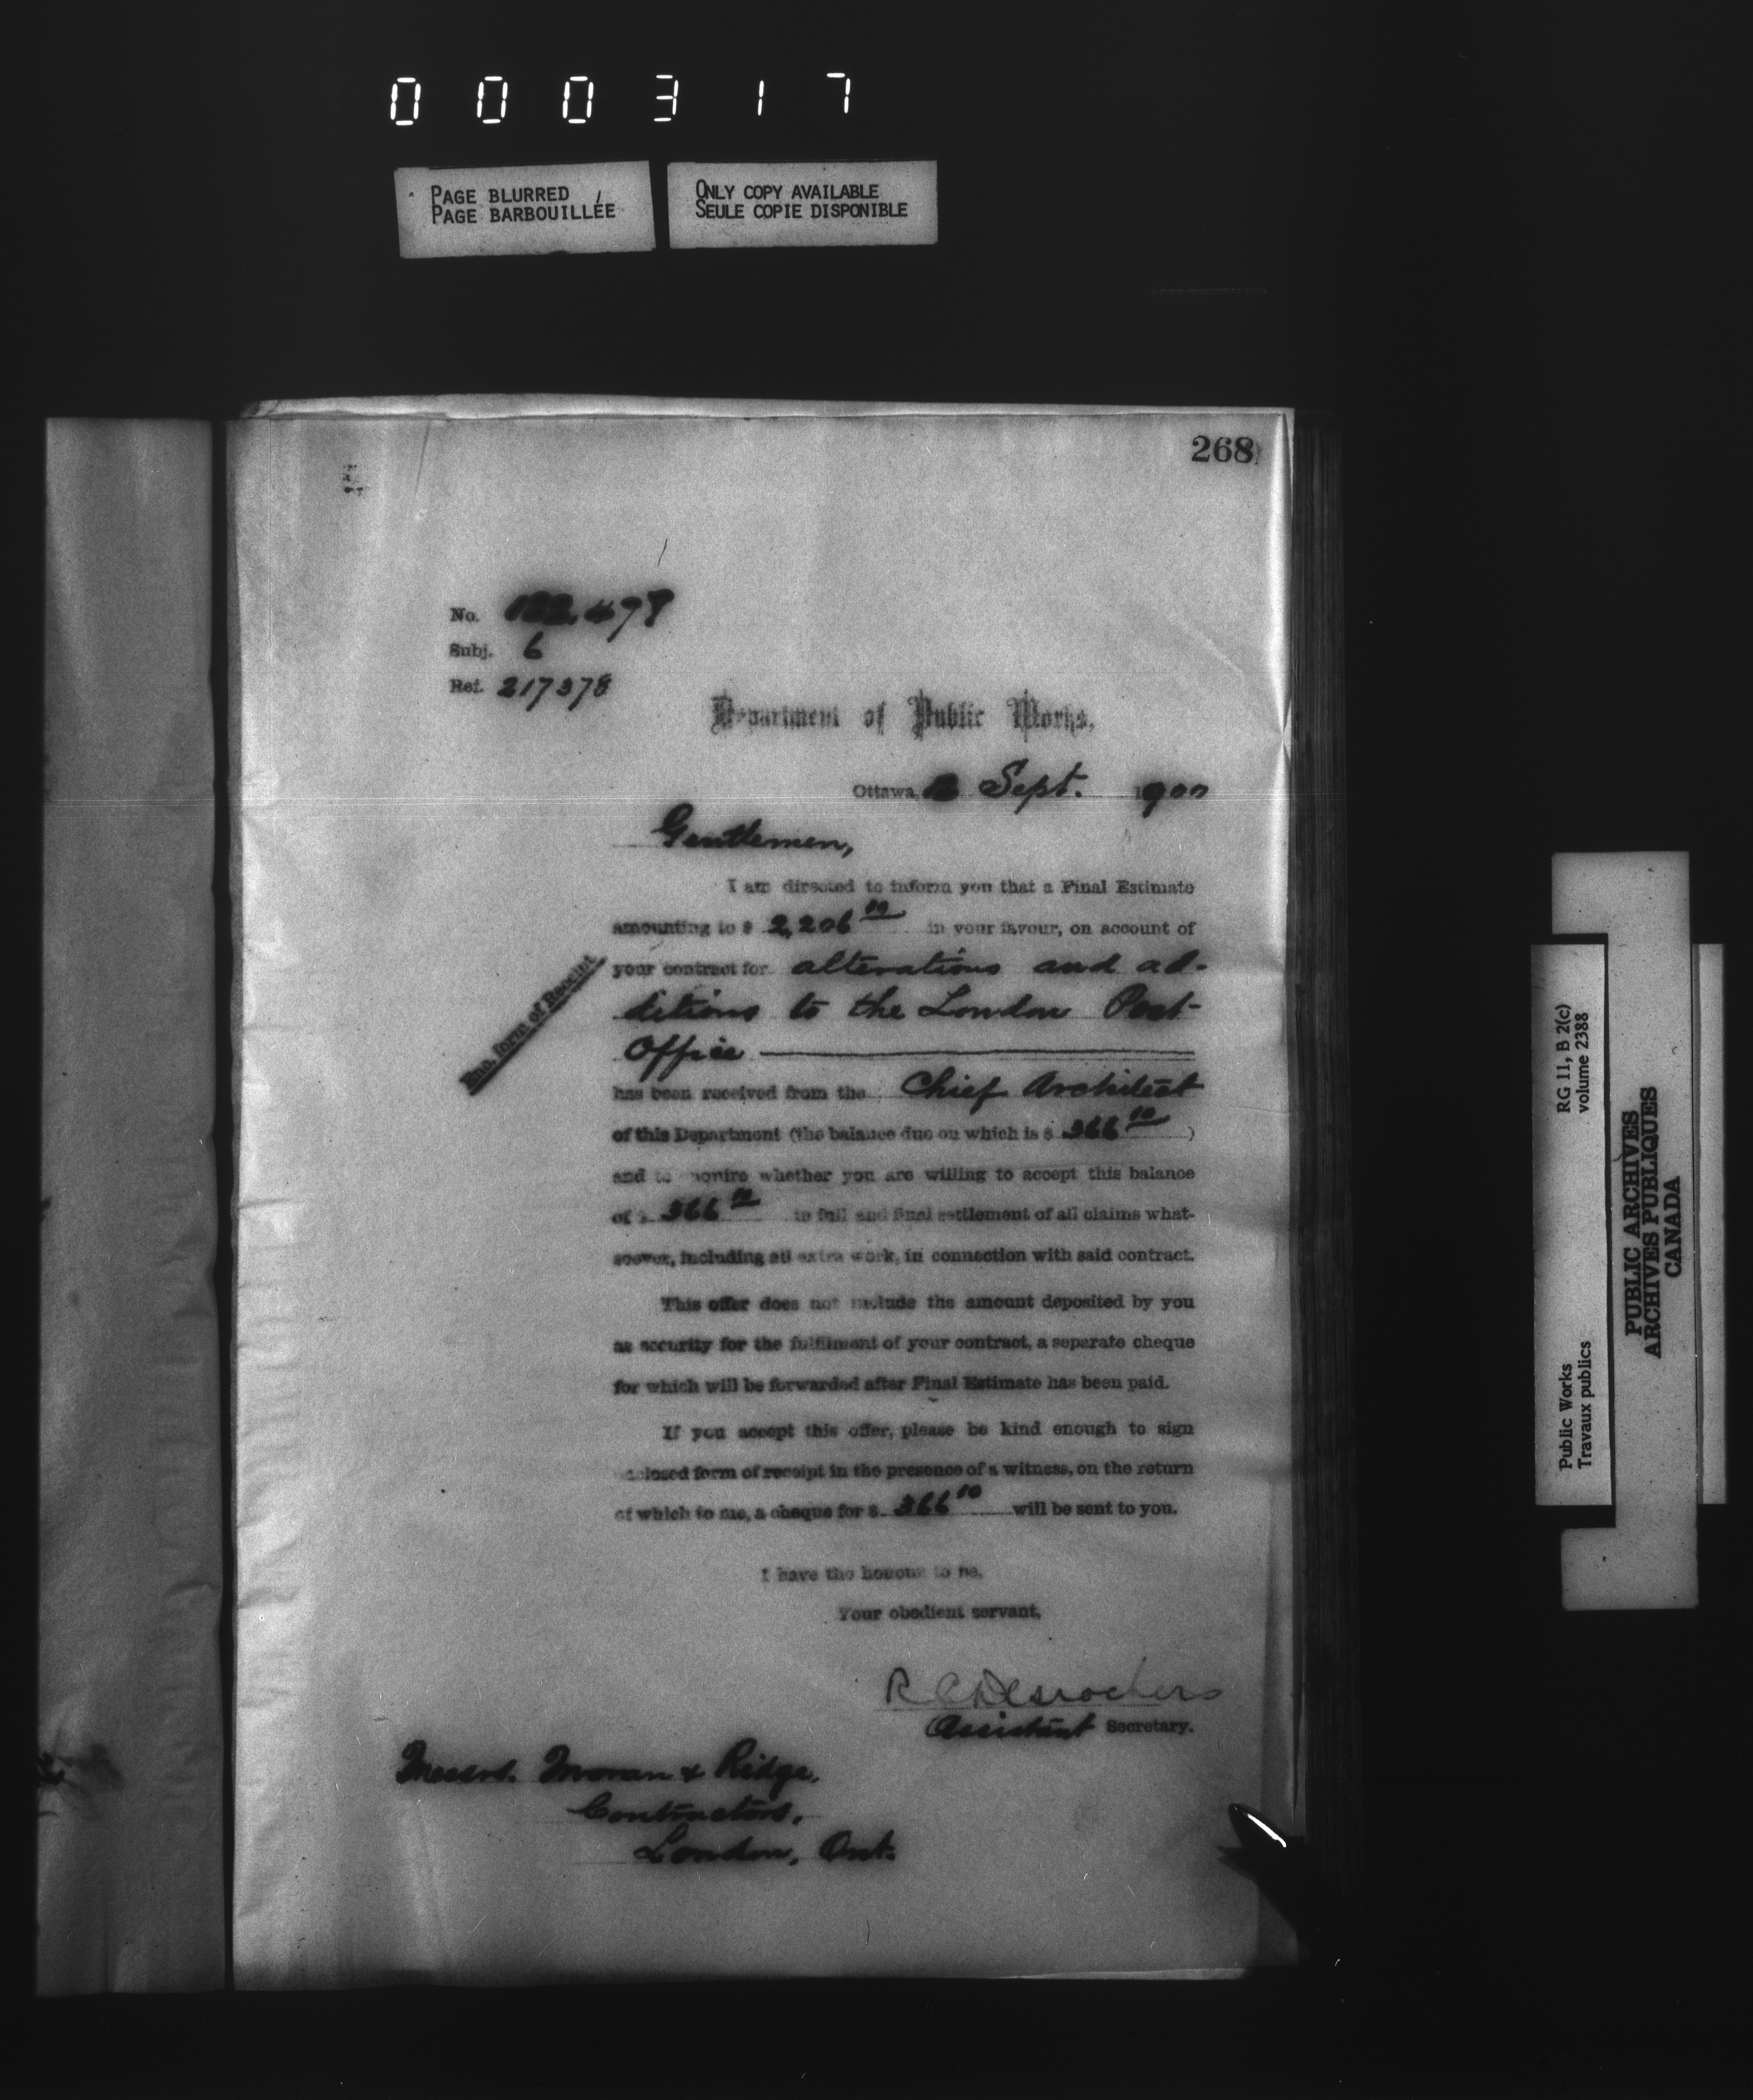 000317
PAGE BLURRED
PAGE BARBOUILLÉE
ONLY COPY AVAILABLE
SEULE COPIE DISPONIBLE
268
No. 122,498
Subj. 6
Ref. 217378
Department of Public Works.
Ottawa, Sept. 1900
Gentlemen,
I am directed to inform you that a Final Estimate
amounting to $ 2,206 10 in your favour, on account of
your contract for alterations and ad-
ditions to the London Post-
Office
has been received from the Chief Architect
of this Department (the balance due on which is $ 366 10 )
and to enquire whether you are willing to accept this balance
of $ 366 10 in full and final settlement of all claims what-
soever, including all extra work, in connection with said contract.
This offer does not include the amount deposited by you
as security for the fulfilment of your contract, a separate cheque
for which will be forwarded after Final Estimate has been paid.
If you accept this offer, please be kind enough to sign
enclosed form of receipt in the presence of a witness, on the return
of which to me, a cheque for $ 366 10 will be sent to you.
I have the honour to be,
Your obedient servant,
R C Desrochers
Assistant Secretary.
Messrs. Moran & Ridge,
Contractors,
London, Ont.
Enc. form of Receipt
Public Works
Travaux publics
RG 11, B 2(c)
volume 2388
PUBLIC ARCHIVES
ARCHIVES PUBLIQUES
CANADA